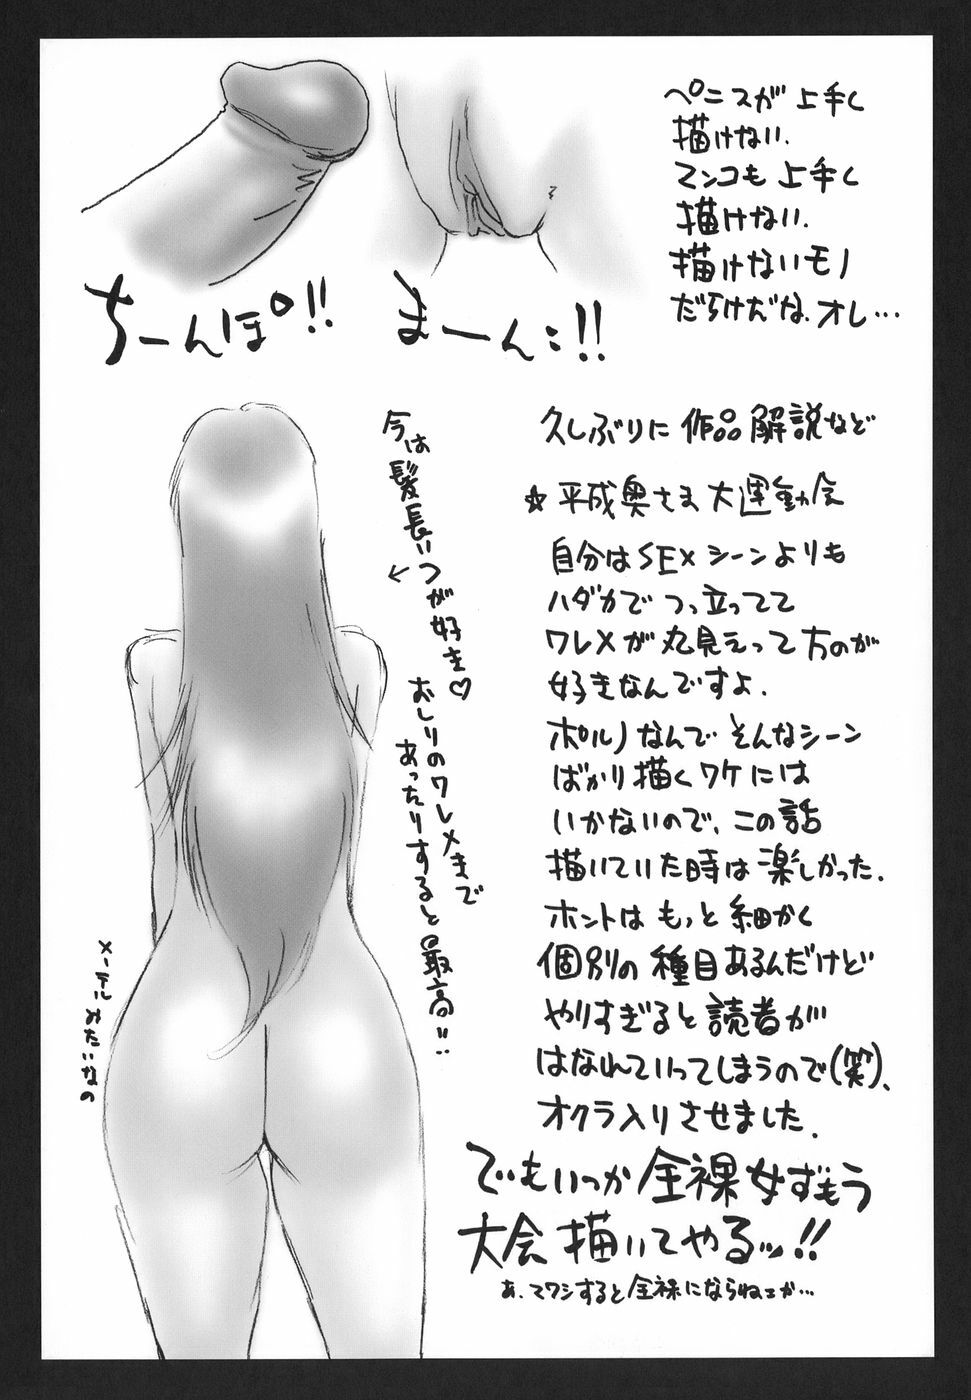 ペニスが上手く
描けない.
マンコも上手く
描けない.
描けないモノ
だらけだな.オレ…
ちーんぽ!!
まーんこ!!
久しぶりに作品解説など
☆平成奥さま大運動会
自分はSEXシーンよりも
ハダカでつっ立ってて
ワレメが丸見えって方のが
好きなんですよ.
ポルノなんでそんなシーン
ばかり描くワケには
いかないので、この話
描いていた時は楽しかった.
ホントはもっと細かく
個別の種目あるんだけど
やりすぎると読者が
はなれていってしまうので(笑)、
オクラ入りさせました.
でもいつか全裸女ずもう
大会描いてやるッ!!
あ.マワシすると全裸にならねェか…
今は髪長いつが好き♡
←
おしりのワレメまで
あったりすると最高!!
メーテルみたいなの